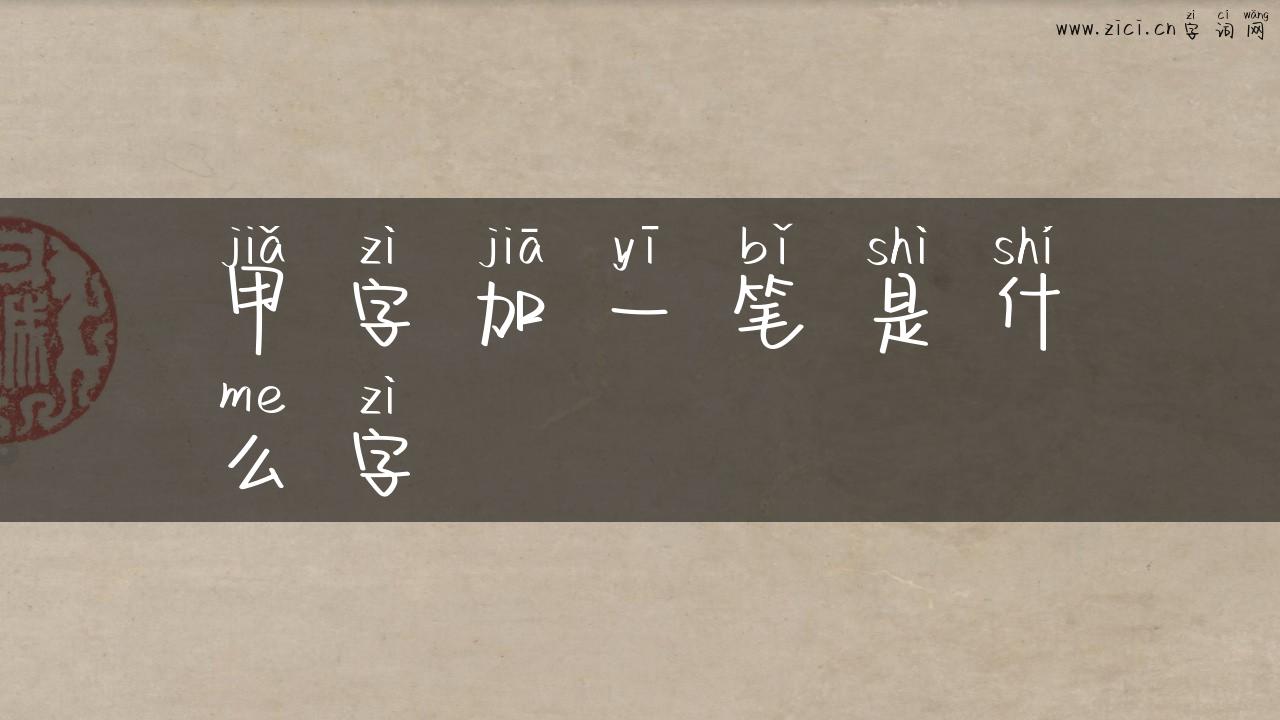 www.zici.cn zì cí wǎng
字词网
jiǎ zì jiā yī bǐ shì shí
甲字加一笔是什
me zì
么字